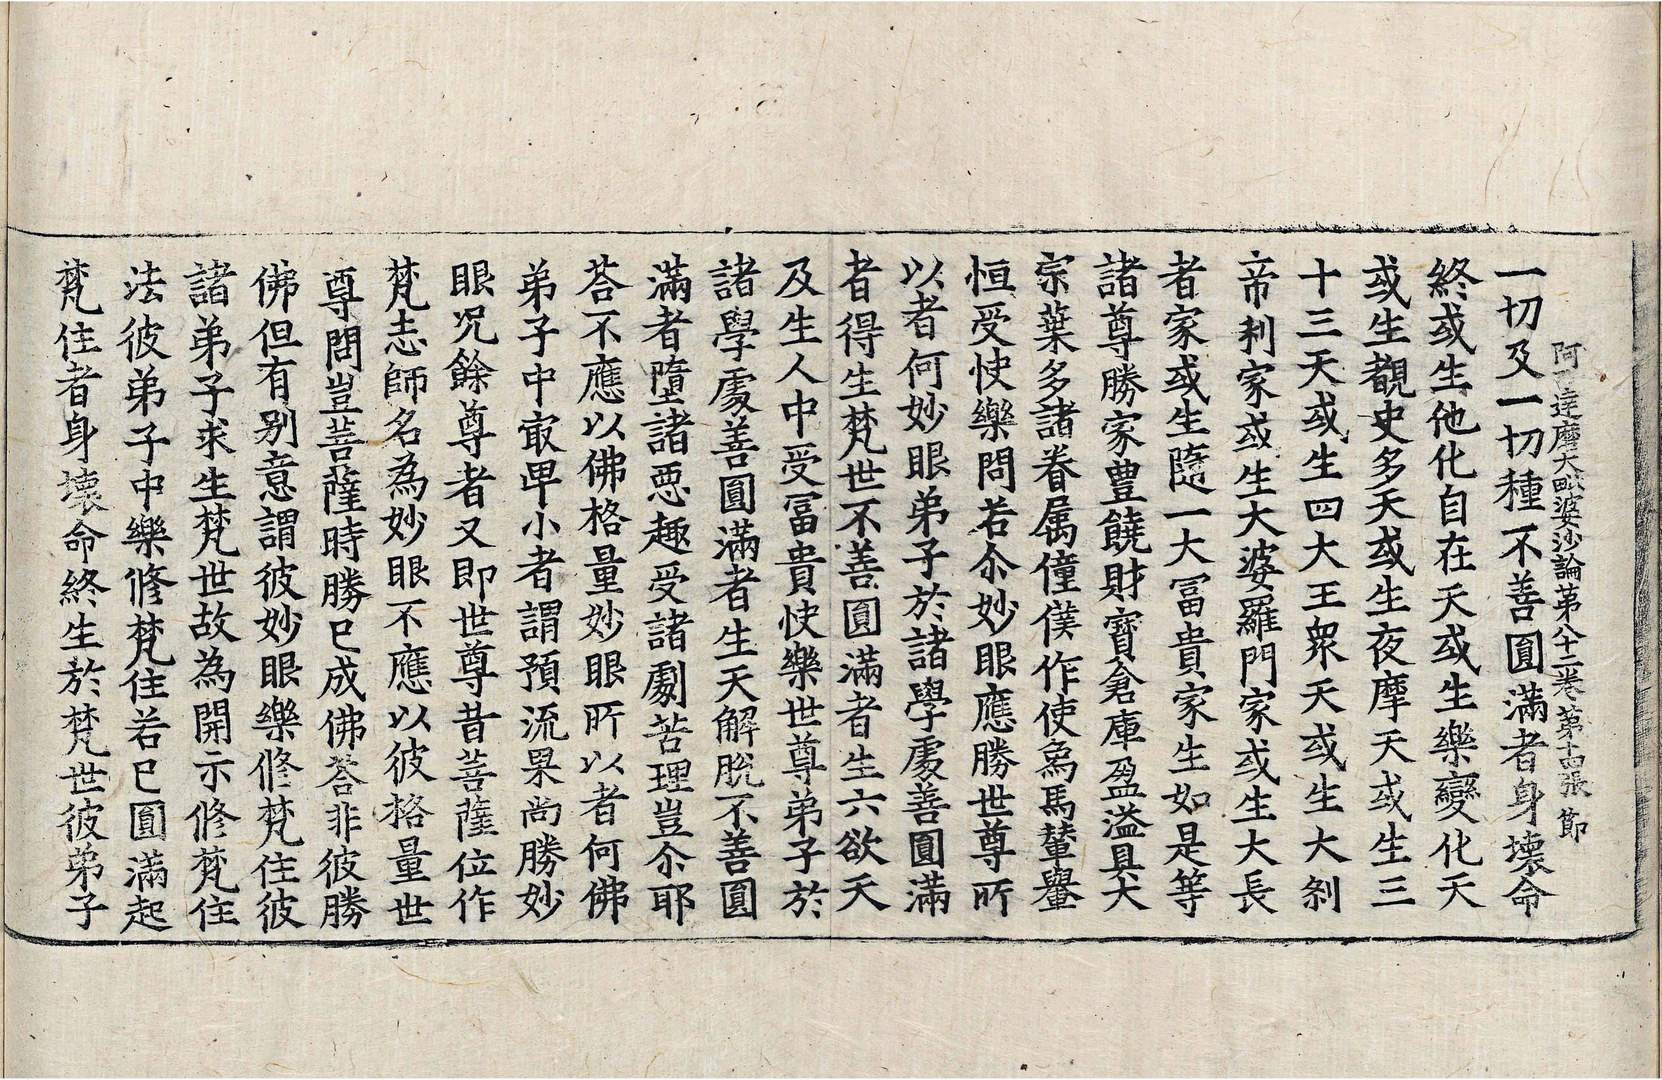 阿毗達磨大毗婆沙論第八十二卷 第十四張 節
一切及一切種不善圓滿者身壞命
終或生他化自在天或生樂變化天
或生覩史多天或生夜摩天或生三
十三天或生四大王眾天或生大剎
帝利家或生大婆羅門家或生大長
者家或生隨一大冨貴家生如是等
諸尊勝家豊饒財寶倉庫盈溢具大
宗葉多諸眷属僮僕作使象馬輦轝
恒受快樂問若尒妙眼應勝世尊所
以者何妙眼弟子於諸學處善圓滿
者得生梵世不善圓滿者生六欲天
及生人中受冨貴快樂世尊弟子於
諸學處善圓滿者生天解脫不善圓
滿者墮諸惡趣受諸劇苦理豈尒耶
荅不應以佛格量妙眼所以者何佛
弟子中㝡卑小者謂預流果尚勝妙
眼況餘尊者又即世尊昔菩薩位作
梵志師名為妙眼不應以彼格量世
尊問豈菩薩時勝已成佛荅非彼勝
佛但有别意謂彼妙眼樂修梵住彼
諸弟子求生梵世故為開示修梵住
法彼弟子中樂修梵住若已圓滿起
梵住者身壞命終生於梵世彼弟子